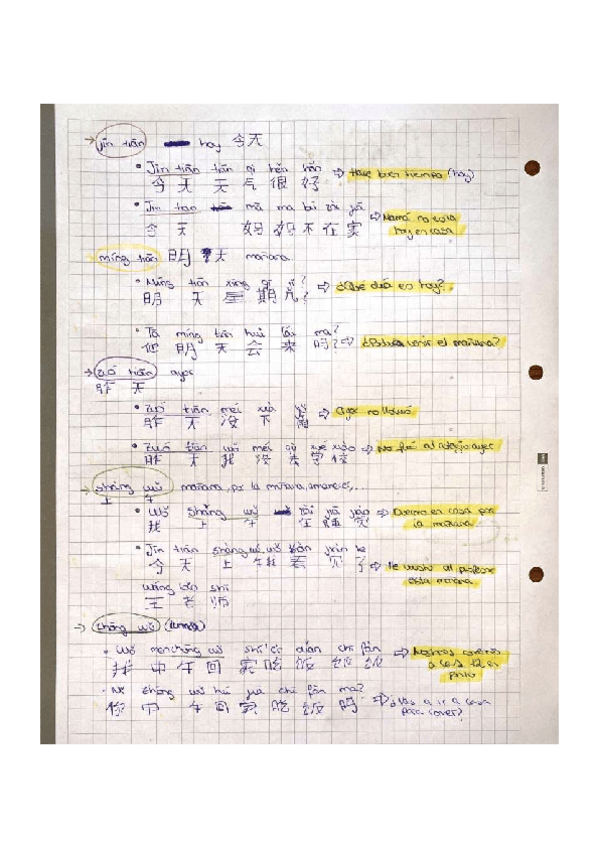 → jīn tiān hoy 今天
• Jīn tiān tiān qì hěn hǎo ⇒ Hace buen tiempo (hoy)
今 天 天 气 很 好
• Jīn tian mā ma bú zài jiā ⇒ Mamá no está
今 天 妈 妈 不 在 家 hoy en casa
míng tiān 明天 mañana
• Míng tiān xīng qī jǐ? ⇒ ¿Qué día es hoy?
明 天 星 期 几?
• Tā míng tiān huì lái ma?
他 明 天 会 来 吗? ⇒ ¿ venir él mañana?
→ zuó tiān ayer
昨 天
• zuó tiān méi xià ⇒ Ayer no llovió
昨 天 没 下 雨
• zuó tiān wǒ méi qù xué xiào ⇒ No fui al colegio ayer
昨 天 我 没 去 学 校
→ shàng wǔ mañana, por la mañana,
上 午
• Wǒ shàng wǔ zài jiā ⇒ en casa por
我 上 午 在 la mañana
• Jīn tiān shàng wǔ wǒ kàn jiàn le
今 天 上 午 我 看 见 了 ⇒ He visto al profesor
esta mañana
wáng lǎo shī
王 老 师
→ zhōng wǔ
• Wǒ men zhōng wǔ shí'èr diǎn chī fàn ⇒ Nosotros comemos
我 中 午 回 家 吃 饭 a las 12 en
punto
• Nǐ zhōng wǔ huí jiā chī fàn ma?
你 中 午 回 家 吃 饭 吗 ⇒ ¿Vas a ir a casa
para comer?